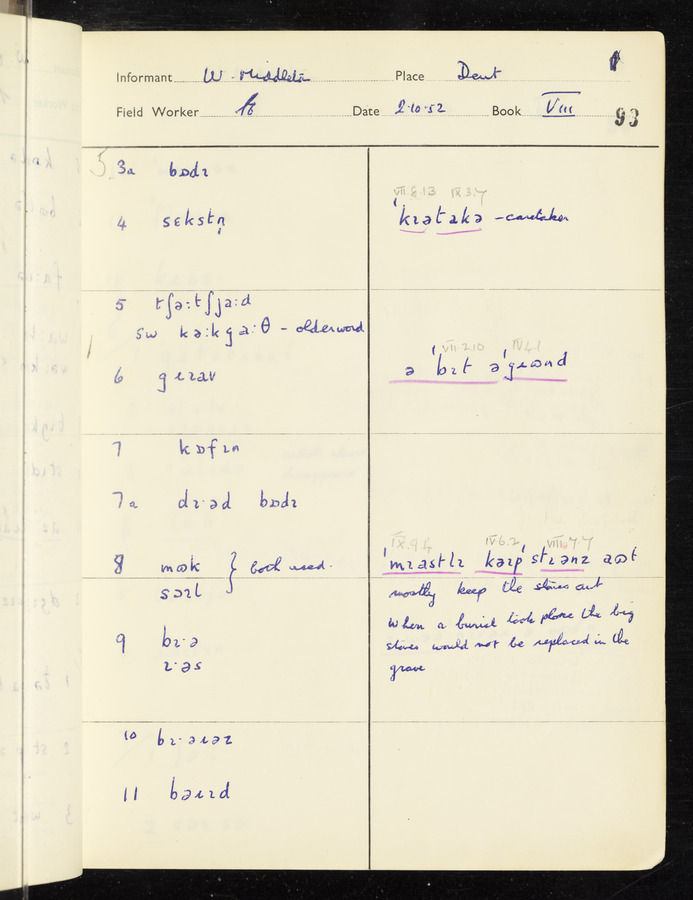 Informant W. Middleton Place Dent
Field Worker Date 2·10·52 Book VIII 93
5. 3a bɒdɪ
VII.8.13 IX.3.7
4 sɛkstn̩ ˈkɪətakə – caretaker
5 tʃəːtʃjaːd
SW kəːkgaːθ – older word
VII.2.10 IV.4.1
6 gɹɪav ə ˈbɪt əˈgɹʊnd
7 kɒfɪn
7a dɪˑəd bɒdɪ
IX.9.4 IV.6.2 VIII.7.7
8 mʊk } both used. ˈmɪəstlɪ kəɪp ˈstɪənz aʊt
sɔɪl mostly keep the stones out
When a burial took place the big
9 bɪˑə stones would not be replaced in the
ɪˑəs grave
10 bɪˑəɹəz
11 bəɹɪd